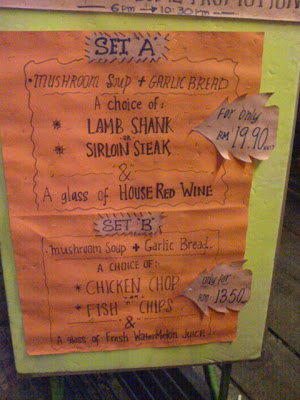 PROMOTION
6PM → 10:30PM
SET 'A'
• MUSHROOM SOUP + GARLIC BREAD
A CHOICE OF:
* LAMB SHANK
OR
* SIRLON STEAK
&
A glass of HOUSE RED WINE
FOR ONLY
RM 19.90
SET 'B'
• mushroom Soup + Garlic Bread.
A CHOICE OF:
* CHICKEN CHOP
* FISH & CHIPS
&
A glass of fresh WaterMelon Juice!
only for
RM 13.50